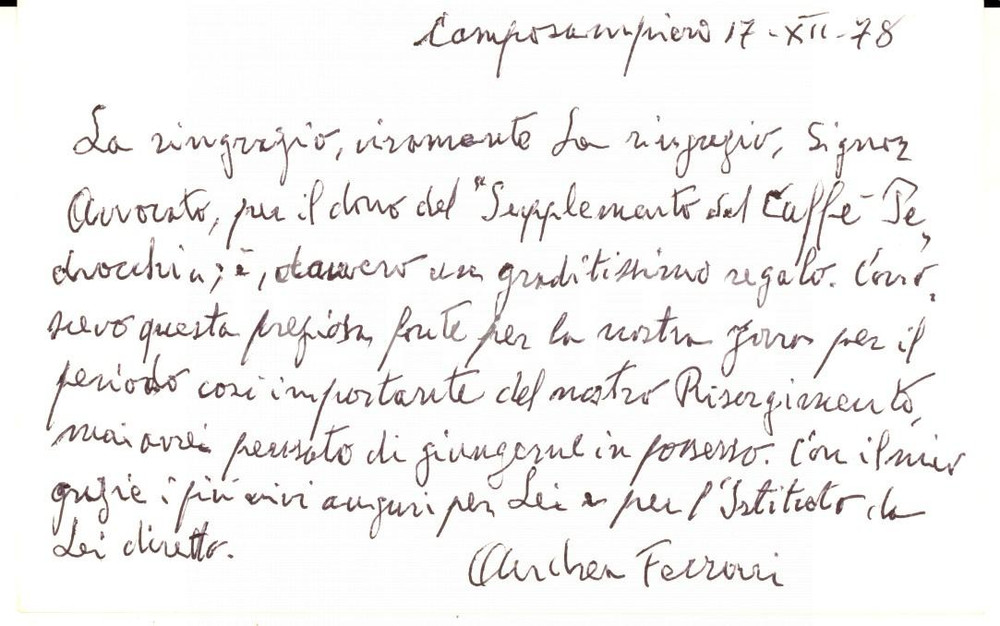 Camposampiero 17-XII-78
La ringrazio, veramente La ringrazio, Signor
Avvocato, per il dono del "Supplemento del Caffè Pe„
drocchi"; è, davvero un graditissimo regalo. Cono„
scevo questa preziosa fonte per la nostra zona per il
periodo così importante del nostro Risorgimento,
mai avrei pensato di giungerne in possesso. Con il mio
grazie i più vivi auguri per Lei e per l'Istituto da
Lei diretto.
Andrea Ferrari